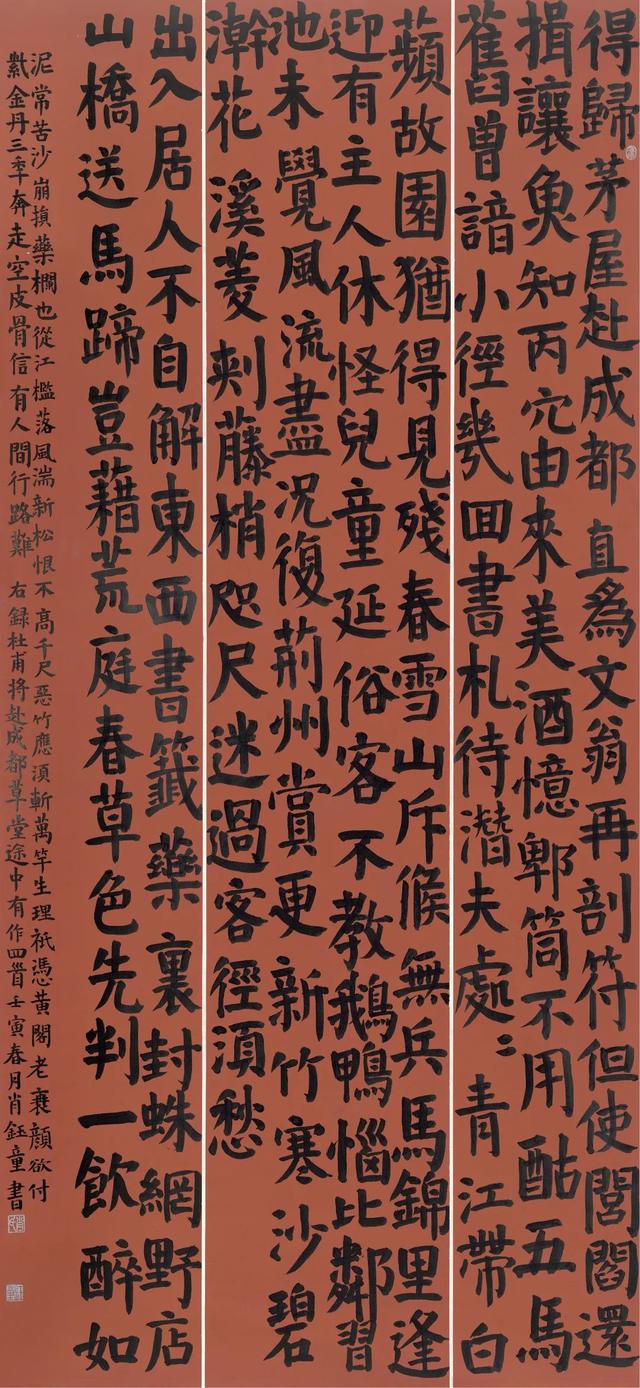 得歸茅屋赴成都直爲文翁再剖符但使閭閻還
揖讓魚知丙穴由來美酒憶郫筒不用酤五馬
舊曾諳小徑幾回書札待潛夫處〻青江帶白
蘋故園猶得見殘春雪山斥候無兵馬錦里逢
迎有主人休怪兒童延俗客不教鵝鴨惱比鄰習
池未覺風流盡況復荊州賞更新竹寒沙碧
澣花溪菱刺藤梢咫尺迷過客徑須愁
出入居人不自解東西書籤藥裏封蛛網野店
山橋送馬蹄豈藉荒庭春草色先判一飲醉如
泥常苦沙崩損藥欄也從江檻落風湍新松恨不高千尺惡竹應須斬萬竿生理祇憑黃閣老衰顏欲付
紫金丹三秊奔走空皮骨信有人間行路難 右録杜甫將赴成都草堂途中有作四首壬寅春月肖鈺童書